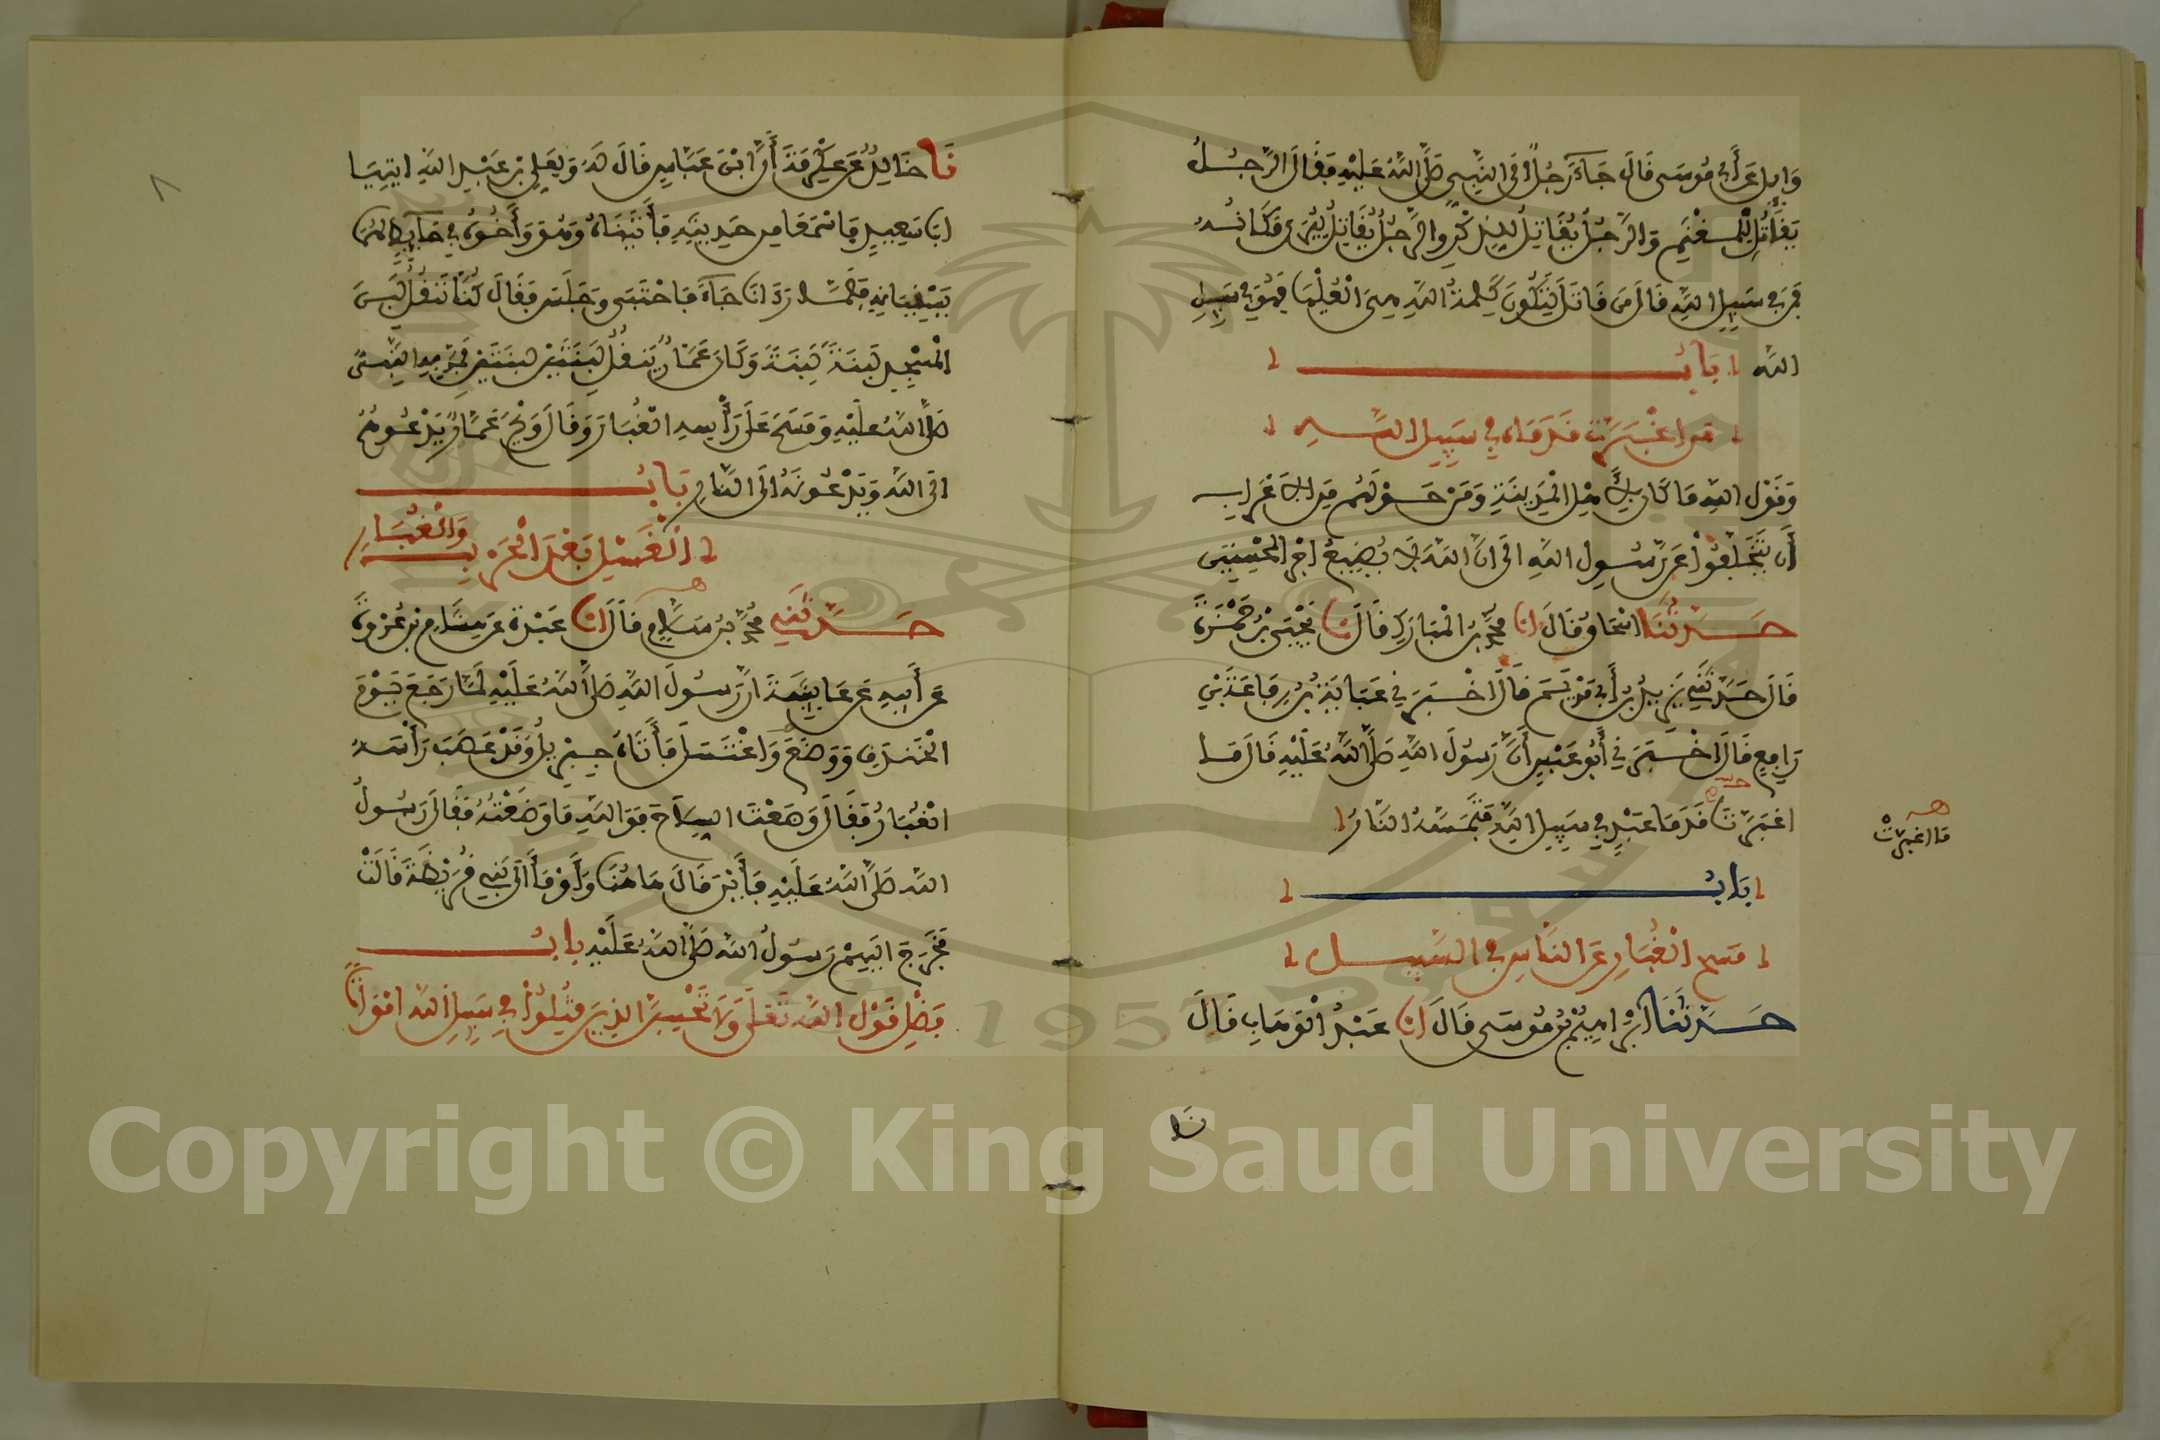 وَايِلٍ عَنْ أَبِي مُوسَى قَالَ جَاءَ رَجُلٌ الَى النَّبِيِّ صَلَّى اللَّهُ عَلَيْهِ فَقَالَ الرَّجُلُ
يُقَاتِلُ لِلْمَغْنَمِ وَالرَّجُلُ يُقَاتِلُ لِلذِّكْرِ وَالرَّجُلُ يُقَاتِلُ لِيُرَى مَكَانُهُ
فَمَنْ فِي سَبِيلِ اللَّهِ قَالَ مَنْ قَاتَلَ لِتَكُونَ كَلِمَةُ اللَّهِ هِيَ الْعُلْيَا فَهُوَ فِي سَبِيلِ
اللَّهِ بَابُ
مَنِ اغْبَرَّتْ قَدَمَاهُ فِي سَبِيلِ اللَّهِ
وَقَوْلِ اللَّهِ مَا كَانَ لِأَهْلِ الْمَدِينَةِ وَمَنْ حَوْلَهُمْ مِنَ الْأَعْرَابِ
أَنْ يَتَخَلَّفُوا عَنْ رَسُولِ اللَّهِ الَى انَّ اللَّهَ لَا يُضِيعُ اجْرَ الْمُحْسِنِينَ
حَدَّثَنَا اسْحَاقُ قَالَ انَا مُحَمَّدُ بْنُ الْمُبَارَكِ قَالَ نَا يَحْيَى بْنُ حَمْزَةَ
قَالَ حَدَّثَنِي يَزِيدُ بْنُ أَبِي مَرْيَمَ قَالَ اخْبَرَنِي عَبَايَةُ بْنُ رِفَاعَةَ بْنِ
رَافِعٍ قَالَ اخْبَرَنِي أَبُو عَبْسٍ أَنَّ رَسُولَ اللَّهِ صَلَّى اللَّهُ عَلَيْهِ قَالَ مَا
اغْبَرَّتَا قَدَمَا عَبْدٍ فِي سَبِيلِ اللَّهِ فَتَمَسَّهُ النَّارُ
مَا اغْبَرَّتْ
بَابُ
مَسْحِ الْغُبَارِ عَنِ النَّاسِ فِي السَّبِيلِ
حَدَّثَنَا ابْرَاهِيمُ بْنُ مُوسَى قَالَ انَا عَبْدُ الْوَهَابِ قَالَ
نَا
٨
نَا خَالِدٌ عَنْ عِكْرِمَةَ أَنَّ ابْنَ عَبَّاسٍ قَالَ لَهُ وَلِعَلِيِّ بْنِ عَبْدِ اللَّهِ ايتِيَا
ابَا سَعِيدٍ فَاسْمَعَا مِنْ حَدِيثِهِ فَأَتَيْنَاهُ وَهُوَ وَأَخُوهُ فِي حَايِطٍ لَهُمَا
يَسْقِيَانِهِ فَلَمَّا رَءَانَا جَاءَ فَاحْتَبَى وَجَلَسَ فَقَالَ كُنَّا نَنْقُلُ لَبِنَ
الْمَسْجِدِ لَبِنَةً لَبِنَةً وَكَانَ عَمَّارٌ يَنْقُلُ لَبِنَتَيْنِ لَبِنَتَيْنِ فَمَرَّ بِهِ النَّبِيُّ
صَلَّى اللَّهُ عَلَيْهِ وَمَسَحَ عَلَى رَأْسِهِ الْغُبَارَ وَقَالَ وَيْحَ عَمَّارٍ يَدْعُوهُمْ
الَى اللَّهِ وَيَدْعُونَهُ الَى النَّارِ بَابُ
الْغُسْلِ بَعْدَ الْحَرْبِ وَالْغُبَارِ
حَدَّثَنِي مُحَمَّدُ بْنُ سَلَامٍ قَالَ انَا عَبْدَةُ عَنْ هِشَامِ بْنِ عُرْوَةَ
عَنْ أَبِيهِ عَنْ عَايِشَةَ انَّ رَسُولَ اللَّهِ صَلَّى اللَّهُ عَلَيْهِ لَمَّا رَجَعَ يَوْمَ
الْخَنْدَقِ وَوَضَعَ وَاغْتَسَلَ فَأَتَاهُ جِبْرِيلُ وَقَدْ عَصَبَ رَأْسَهُ
الْغُبَارُ فَقَالَ وَضَعْتَ السِّلَاحَ فَوَاللَّهِ مَا وَضَعْتُهُ فَقَالَ رَسُولُ
اللَّهِ صَلَّى اللَّهُ عَلَيْهِ فَأَيْنَ قَالَ هَاهُنَا وَأَوْمَأَ الَى بَنِي قُرَيْظَةَ قَالَتْ
فَخَرَجَ الَيْهِمْ رَسُولُ اللَّهِ صَلَّى اللَّهُ عَلَيْهِ بَابُ
فَضْلِ قَوْلِ اللَّهِ تَعَلَى وَلَا تَحْسِبَنَّ الذِينَ قُتِلُوا فِي سَبِيلِ اللَّهِ امْوَاتًا
1957
Copyright © King Saud University